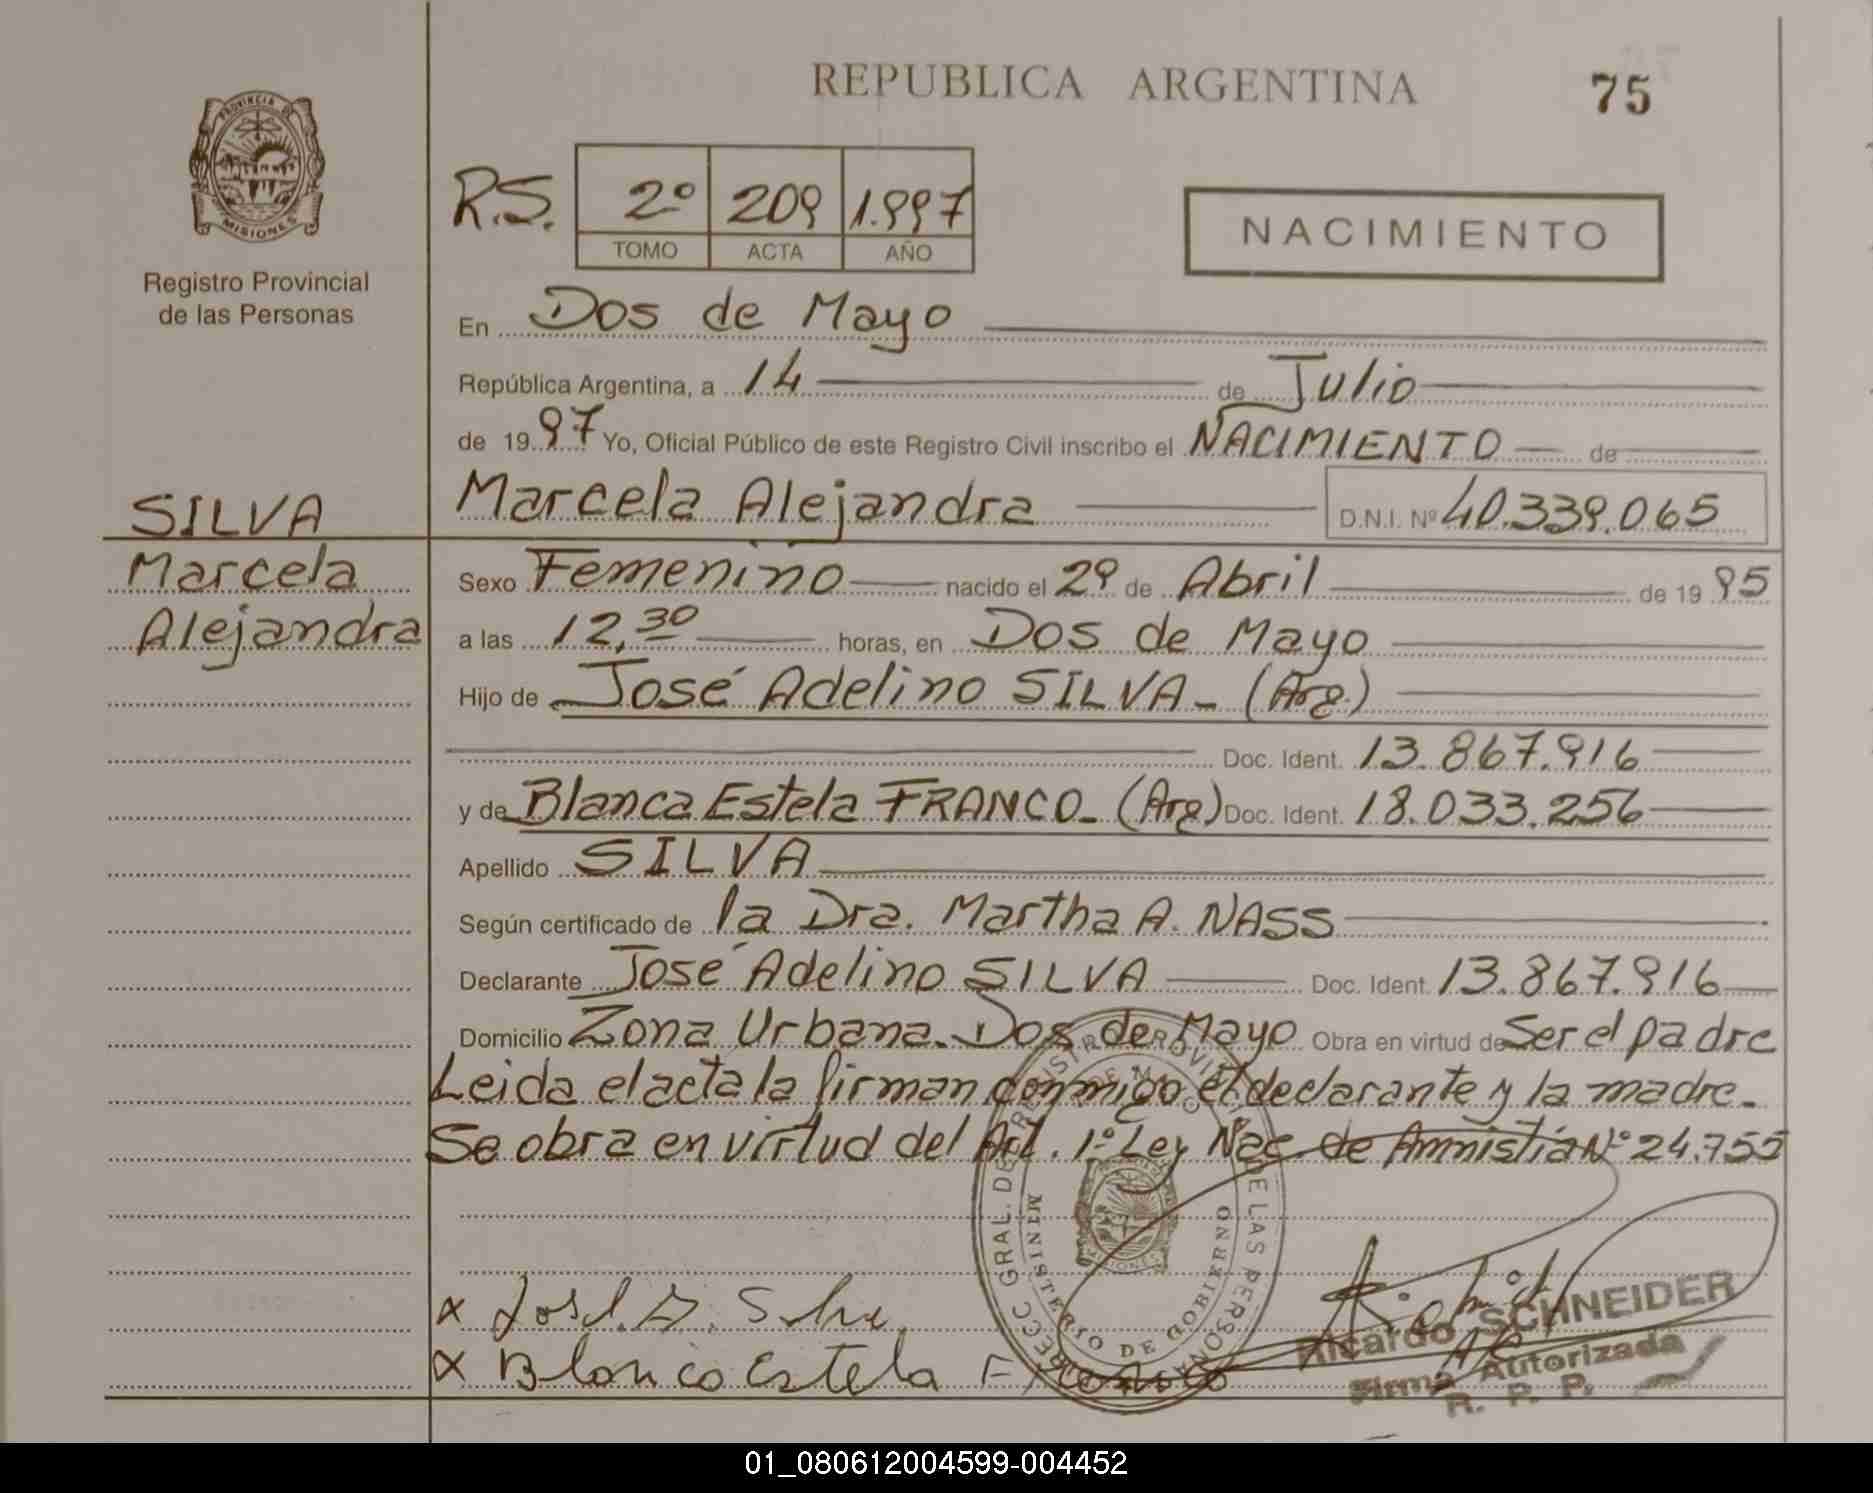 REPUBLICA ARGENTINA
75
PROVINCIA DE
MISIONES
Registro Provincial
de las Personas
R.S. 2º 209 1.997
TOMO ACTA AÑO
NACIMIENTO
En Dos de Mayo
República Argentina, a 14 de Julio
de 1997 Yo, Oficial Público de este Registro Civil inscribo el NACIMIENTO de
SILVA
Marcela
Alejandra
Marcela Alejandra D.N.I. Nº 40.339.065
Sexo Femenino nacido el 29 de Abril de 1995
a las 12,30 horas, en Dos de Mayo
Hijo de José Adelino SILVA - (Arg.)
Doc. Ident. 13.867.916
y de Blanca Estela FRANCO - (Arg) Doc. Ident. 18.033.256
Apellido SILVA
Según certificado de la Dra. Martha A. NASS
Declarante José Adelino SILVA Doc. Ident. 13.867.916
Domicilio Zona Urbana. Dos de Mayo Obra en virtud de Ser el padre
Leida el acta la firman conmigo el declarante y la madre.
Se obra en virtud del Art. 1º Ley Nac de Amnistía Nº 24.755
DIRECC GRAL. DE REGISTRO PROVINCIAL DE LAS PERSONAS
MINISTERIO DE GOBIERNO
MISIONES
x José. A. Silva.
x Blanca Estela Franco
Ricardo SCHNEIDER
Firma Autorizada
R. P. P.
01_080612004599-004452